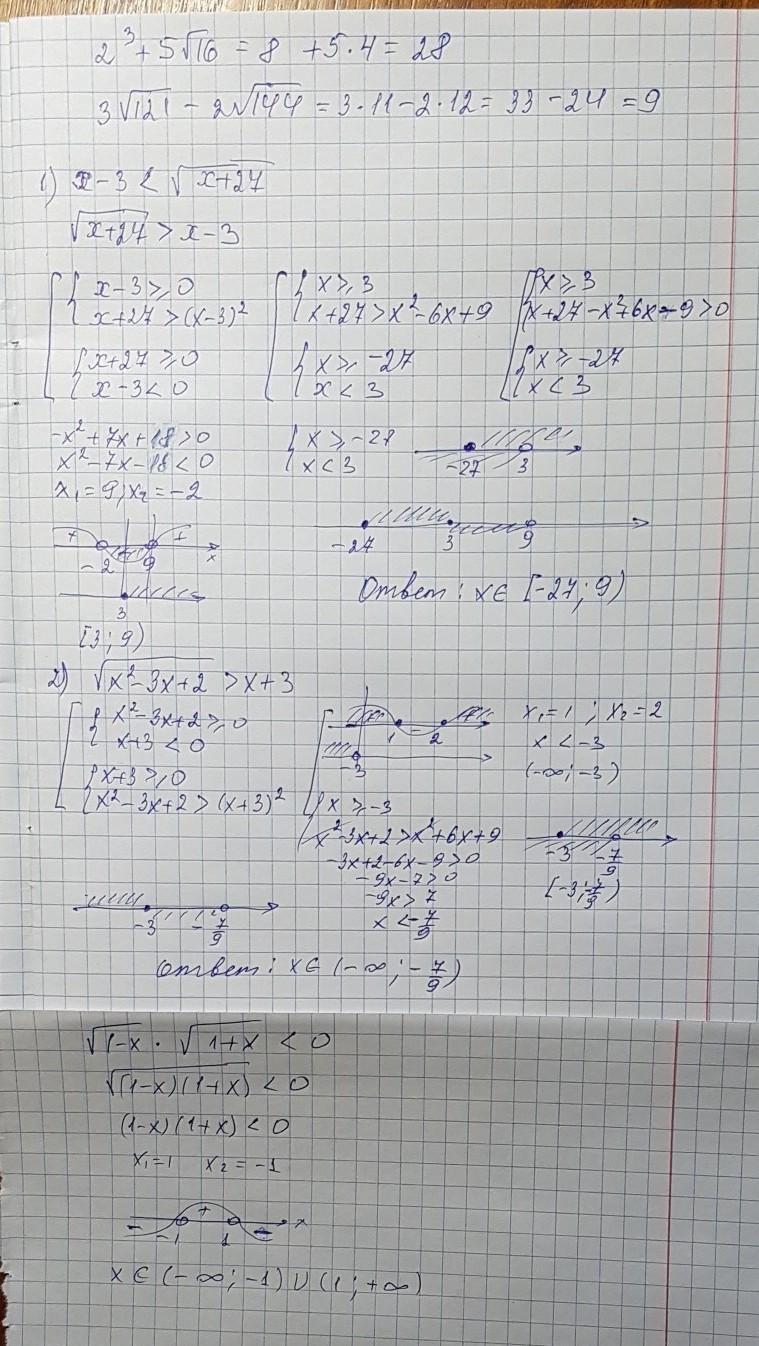 2³ + 5√16 = 8 + 5·4 = 28
3√121 - 2√144 = 3·11 - 2·12 = 33 - 24 = 9
1) x - 3 < √x+27
√x+27 > x - 3
x - 3 ≥ 0
x + 27 > (x-3)²
x + 27 ≥ 0
x - 3 < 0
x ≥ 3
x + 27 > x² - 6x + 9
x ≥ -27
x < 3
x ≥ 3
x + 27 - x² + 6x - 9 > 0
x ≥ -27
x < 3
-x² + 7x + 18 > 0
x² - 7x - 18 < 0
x₁ = 9; x₂ = -2
+ +
-2 9 x
3
[3; 9)
x ≥ -27
x < 3
-27 3
-27 3 9
Ответ: x ∈ [-27; 9)
2) √x² - 3x + 2 > x + 3
x² - 3x + 2 ≥ 0
x + 3 < 0
x + 3 ≥ 0
x² - 3x + 2 > (x+3)²
1 - 2
-3
x₁ = 1 ; x₂ = 2
x < -3
(-∞; -3)
x ≥ -3
x² - 3x + 2 > x² + 6x + 9
-3x + 2 - 6x - 9 > 0
-9x - 7 > 0
-9x > 7
x < -7/9
-3 -7/9
[-3; -7/9)
-3 -7/9
Ответ: x ∈ (-∞; -7/9)
√1-x · √1+x < 0
√(1-x)(1+x) < 0
(1-x)(1+x) < 0
x₁ = 1 x₂ = -1
- + - x
-1 1
x ∈ (-∞; -1) ∪ (1; +∞)